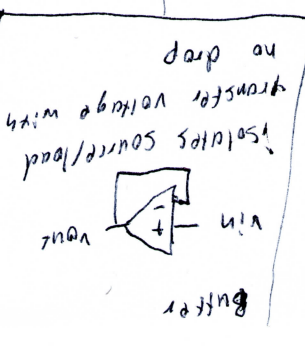 Buffer
vin + vout
-
isolates source/load
transfer voltage with
no drop